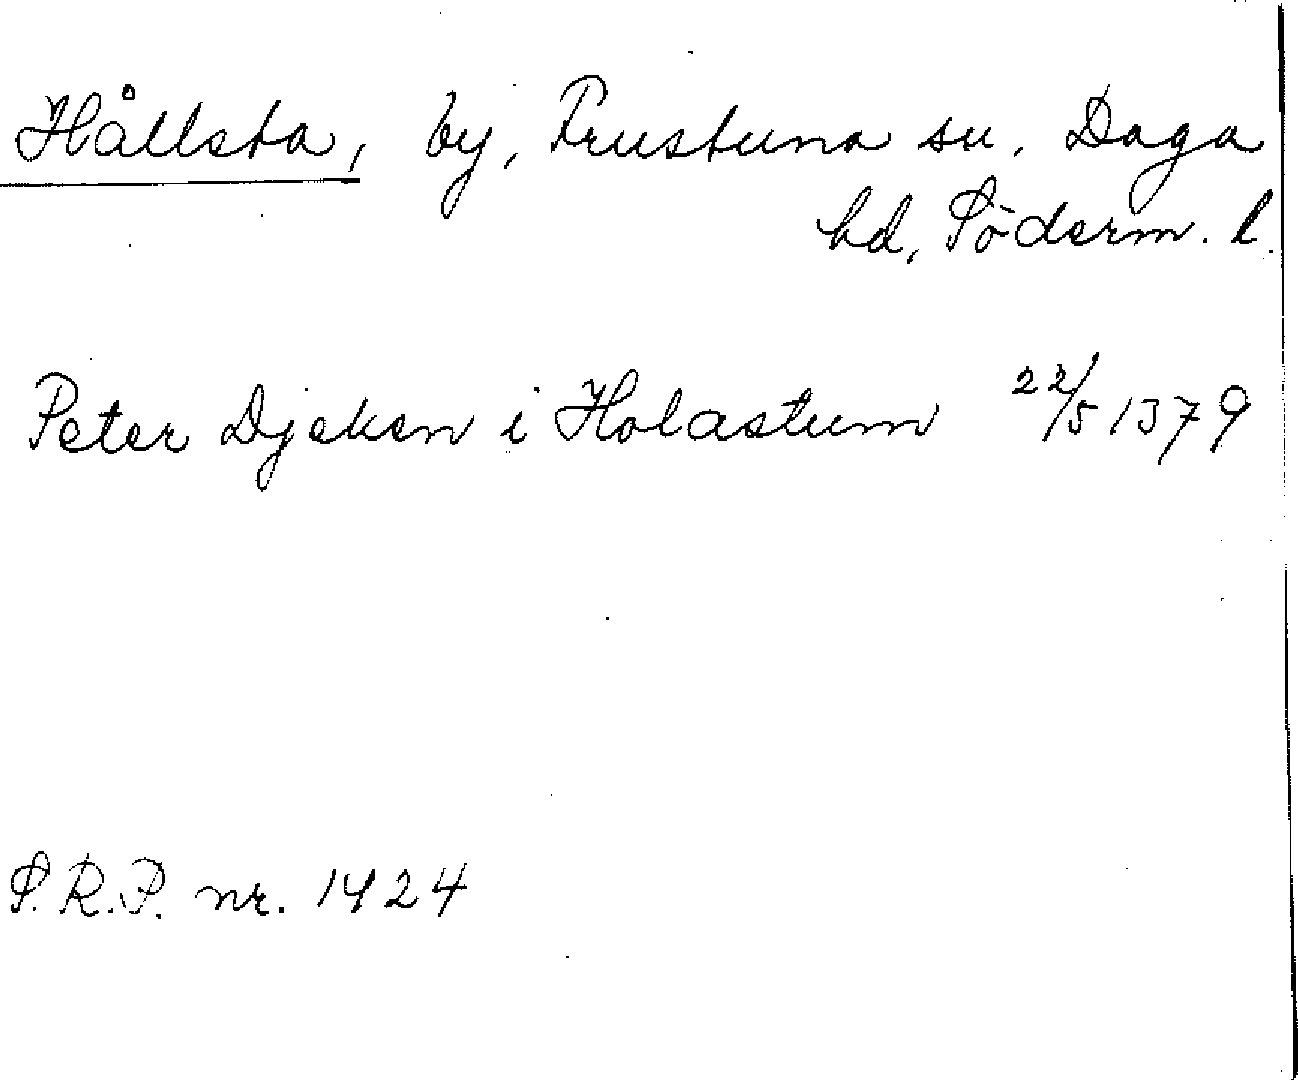 Hållsta, by, Frustuna sn. Daga
hd, Söderm. l.
Peter Djeken i Holastum 22/5 1379
S.R.P. nr. 1424